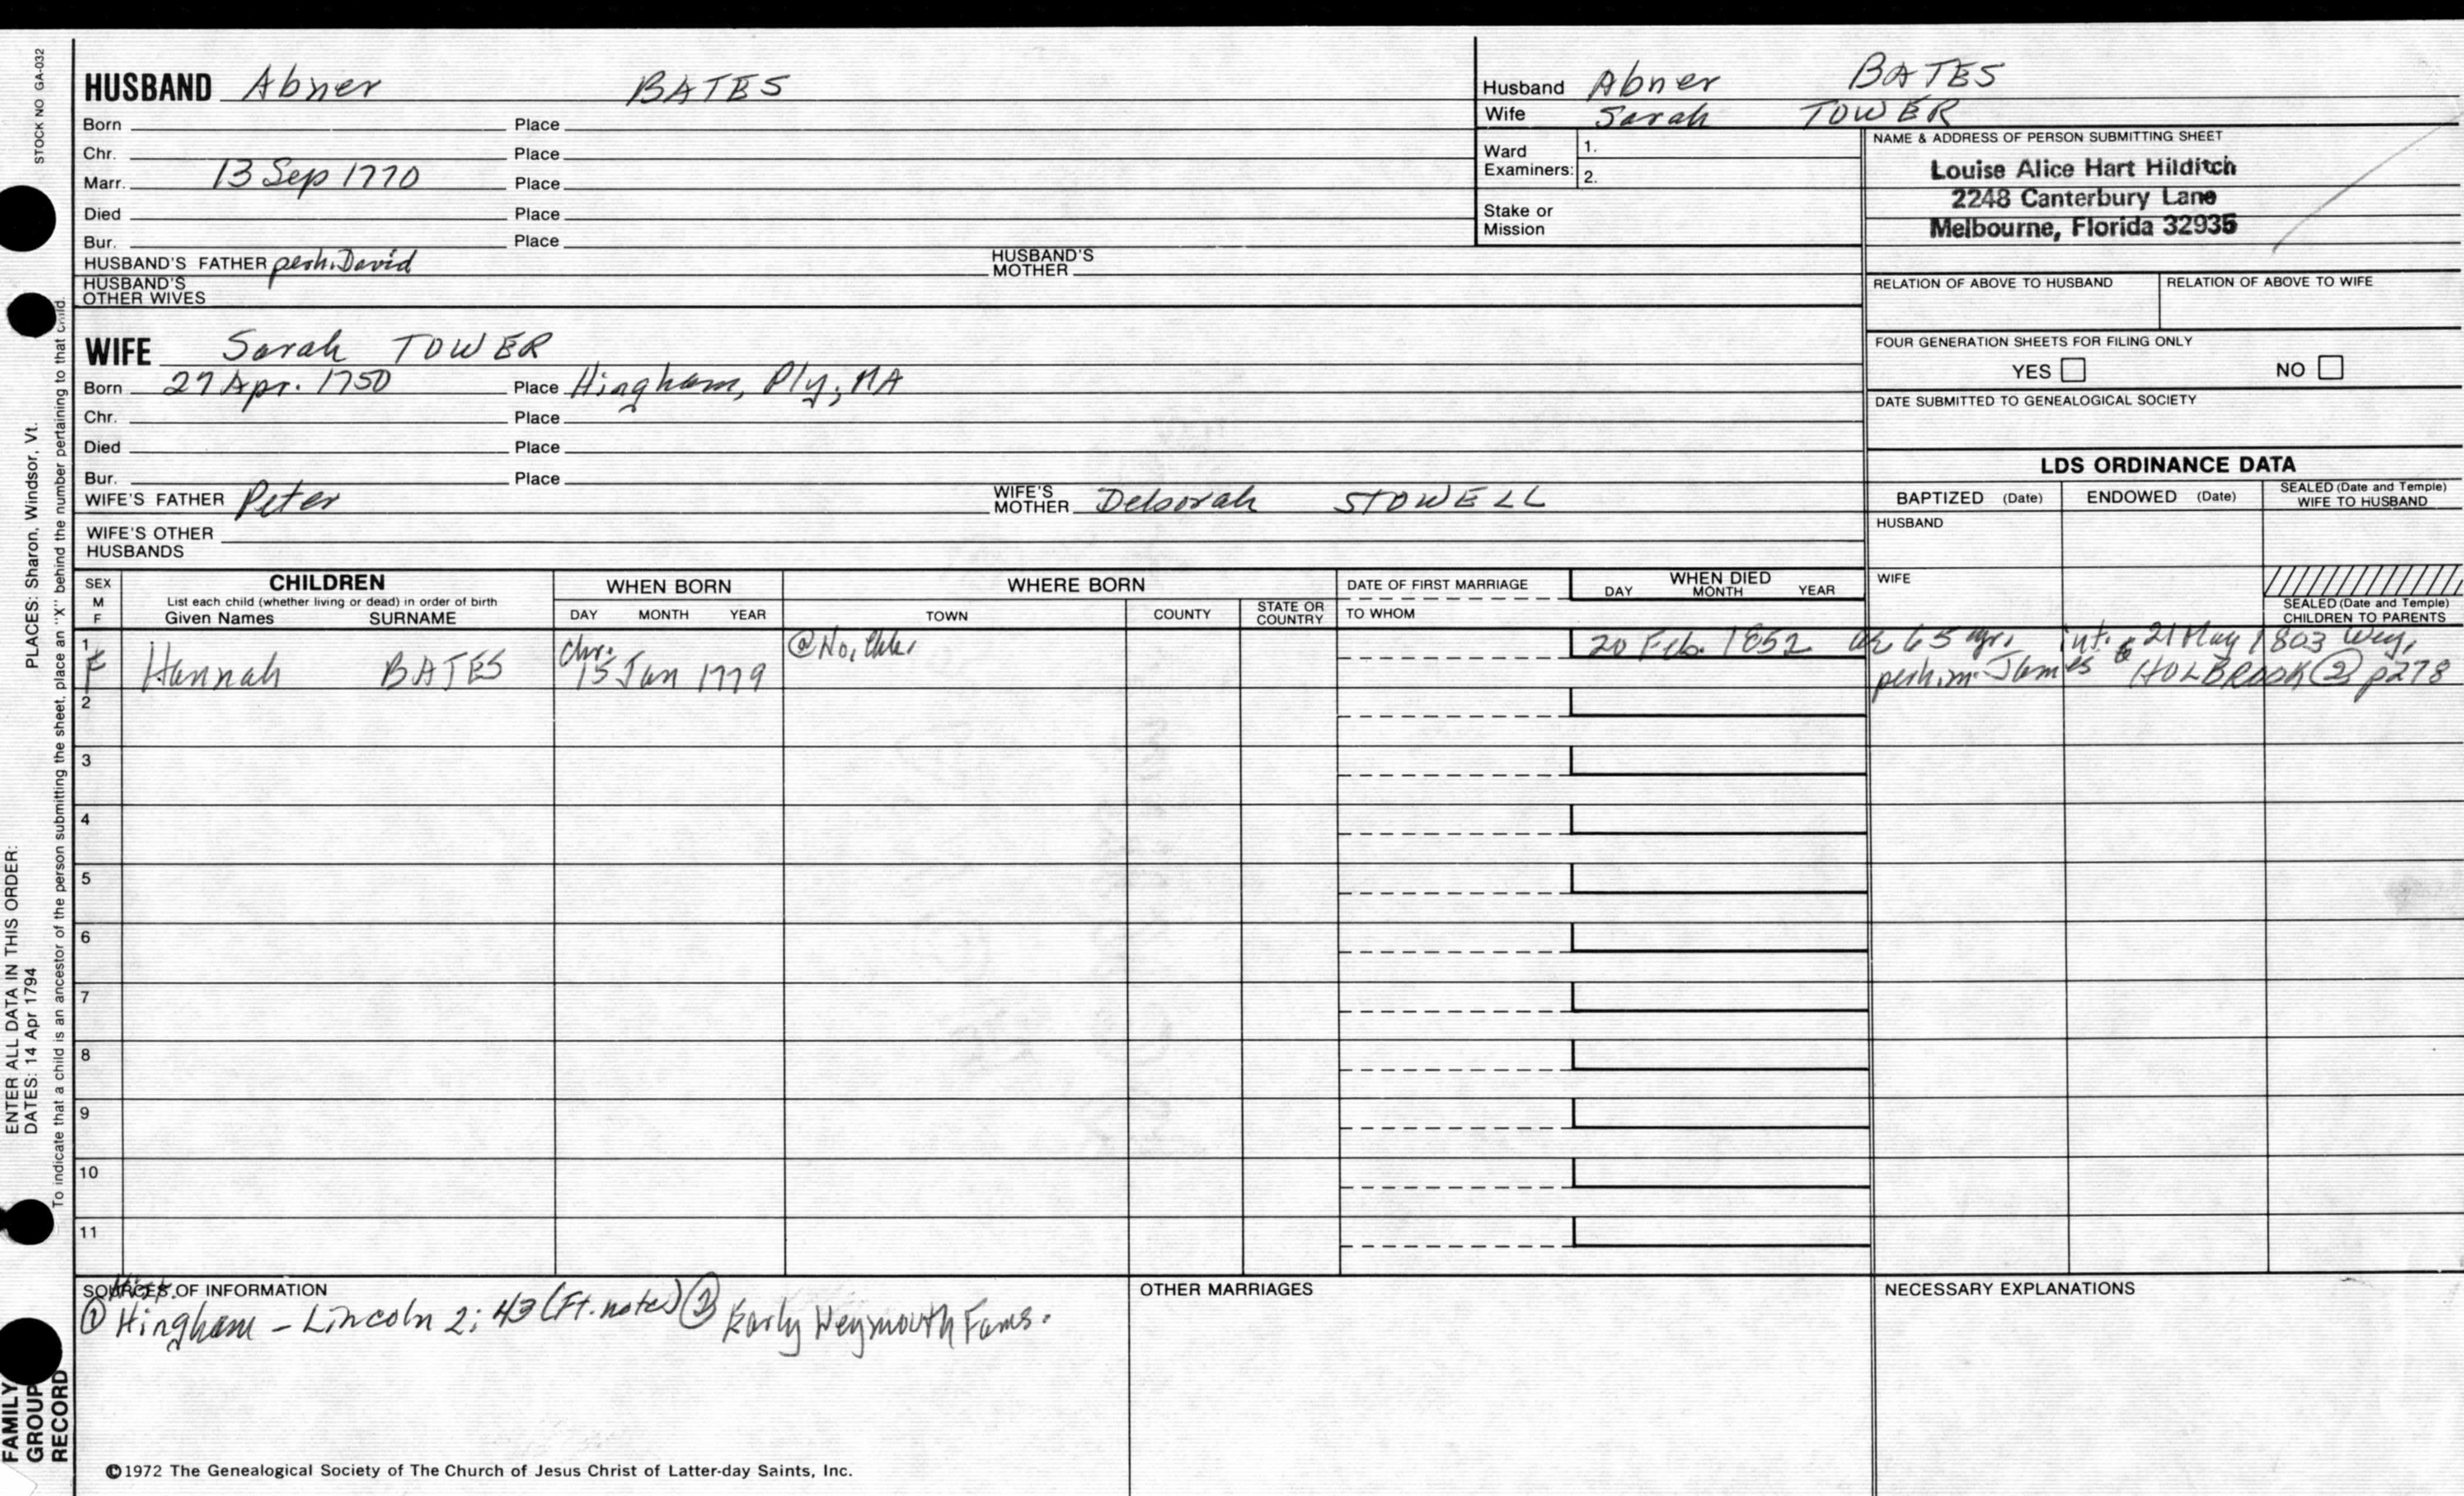 STOCK NO GA-032
HUSBAND Abner BATES
Born Place
Chr. Place
Marr. 13 Sep 1770 Place
Died Place
Bur. Place
HUSBAND'S FATHER perh. David HUSBAND'S MOTHER
HUSBAND'S OTHER WIVES
Husband Abner BATES
Wife Sarah TOWER
Ward Examiners: 1.
2.
Stake or Mission
NAME & ADDRESS OF PERSON SUBMITTING SHEET
Louise Alice Hart Hilditch
2248 Canterbury Lane
Melbourne, Florida 32935
RELATION OF ABOVE TO HUSBAND RELATION OF ABOVE TO WIFE
FOUR GENERATION SHEETS FOR FILING ONLY
YES NO
DATE SUBMITTED TO GENEALOGICAL SOCIETY
WIFE Sarah TOWER
Born 27 Apr. 1750 Place Hingham, Ply, MA
Chr. Place
Died Place
Bur. Place
WIFE'S FATHER Peter WIFE'S MOTHER Deborah STOWELL
WIFE'S OTHER HUSBANDS
LDS ORDINANCE DATA
BAPTIZED (Date) ENDOWED (Date) SEALED (Date and Temple) WIFE TO HUSBAND
HUSBAND
WIFE
SEALED (Date and Temple) CHILDREN TO PARENTS
SEX M F
CHILDREN
List each child (whether living or dead) in order of birth
Given Names SURNAME
WHEN BORN
DAY MONTH YEAR
WHERE BORN
TOWN COUNTY STATE OR COUNTRY
DATE OF FIRST MARRIAGE
TO WHOM
WHEN DIED
DAY MONTH YEAR
1 F Hannah BATES chr. 15 Jan 1779 @ No. 20 Feb. 1852 65 yrs. int. 21 May 1803 Wey.
perh. m. James HOLBROOK ② p278
2
3
4
5
6
7
8
9
10
11
SOURCES OF INFORMATION
① Hist. Hingham - Lincoln 2: 43 (Ft. notes) ② Early Weymouth Fams.
OTHER MARRIAGES
NECESSARY EXPLANATIONS
©1972 The Genealogical Society of The Church of Jesus Christ of Latter-day Saints, Inc.
ENTER ALL DATA IN THIS ORDER:
DATES: 14 Apr 1794 PLACES: Sharon, Windsor, Vt.
To indicate that a child is an ancestor of the person submitting the sheet, place an "X" behind the number pertaining to that child.
FAMILY
GROUP
RECORD